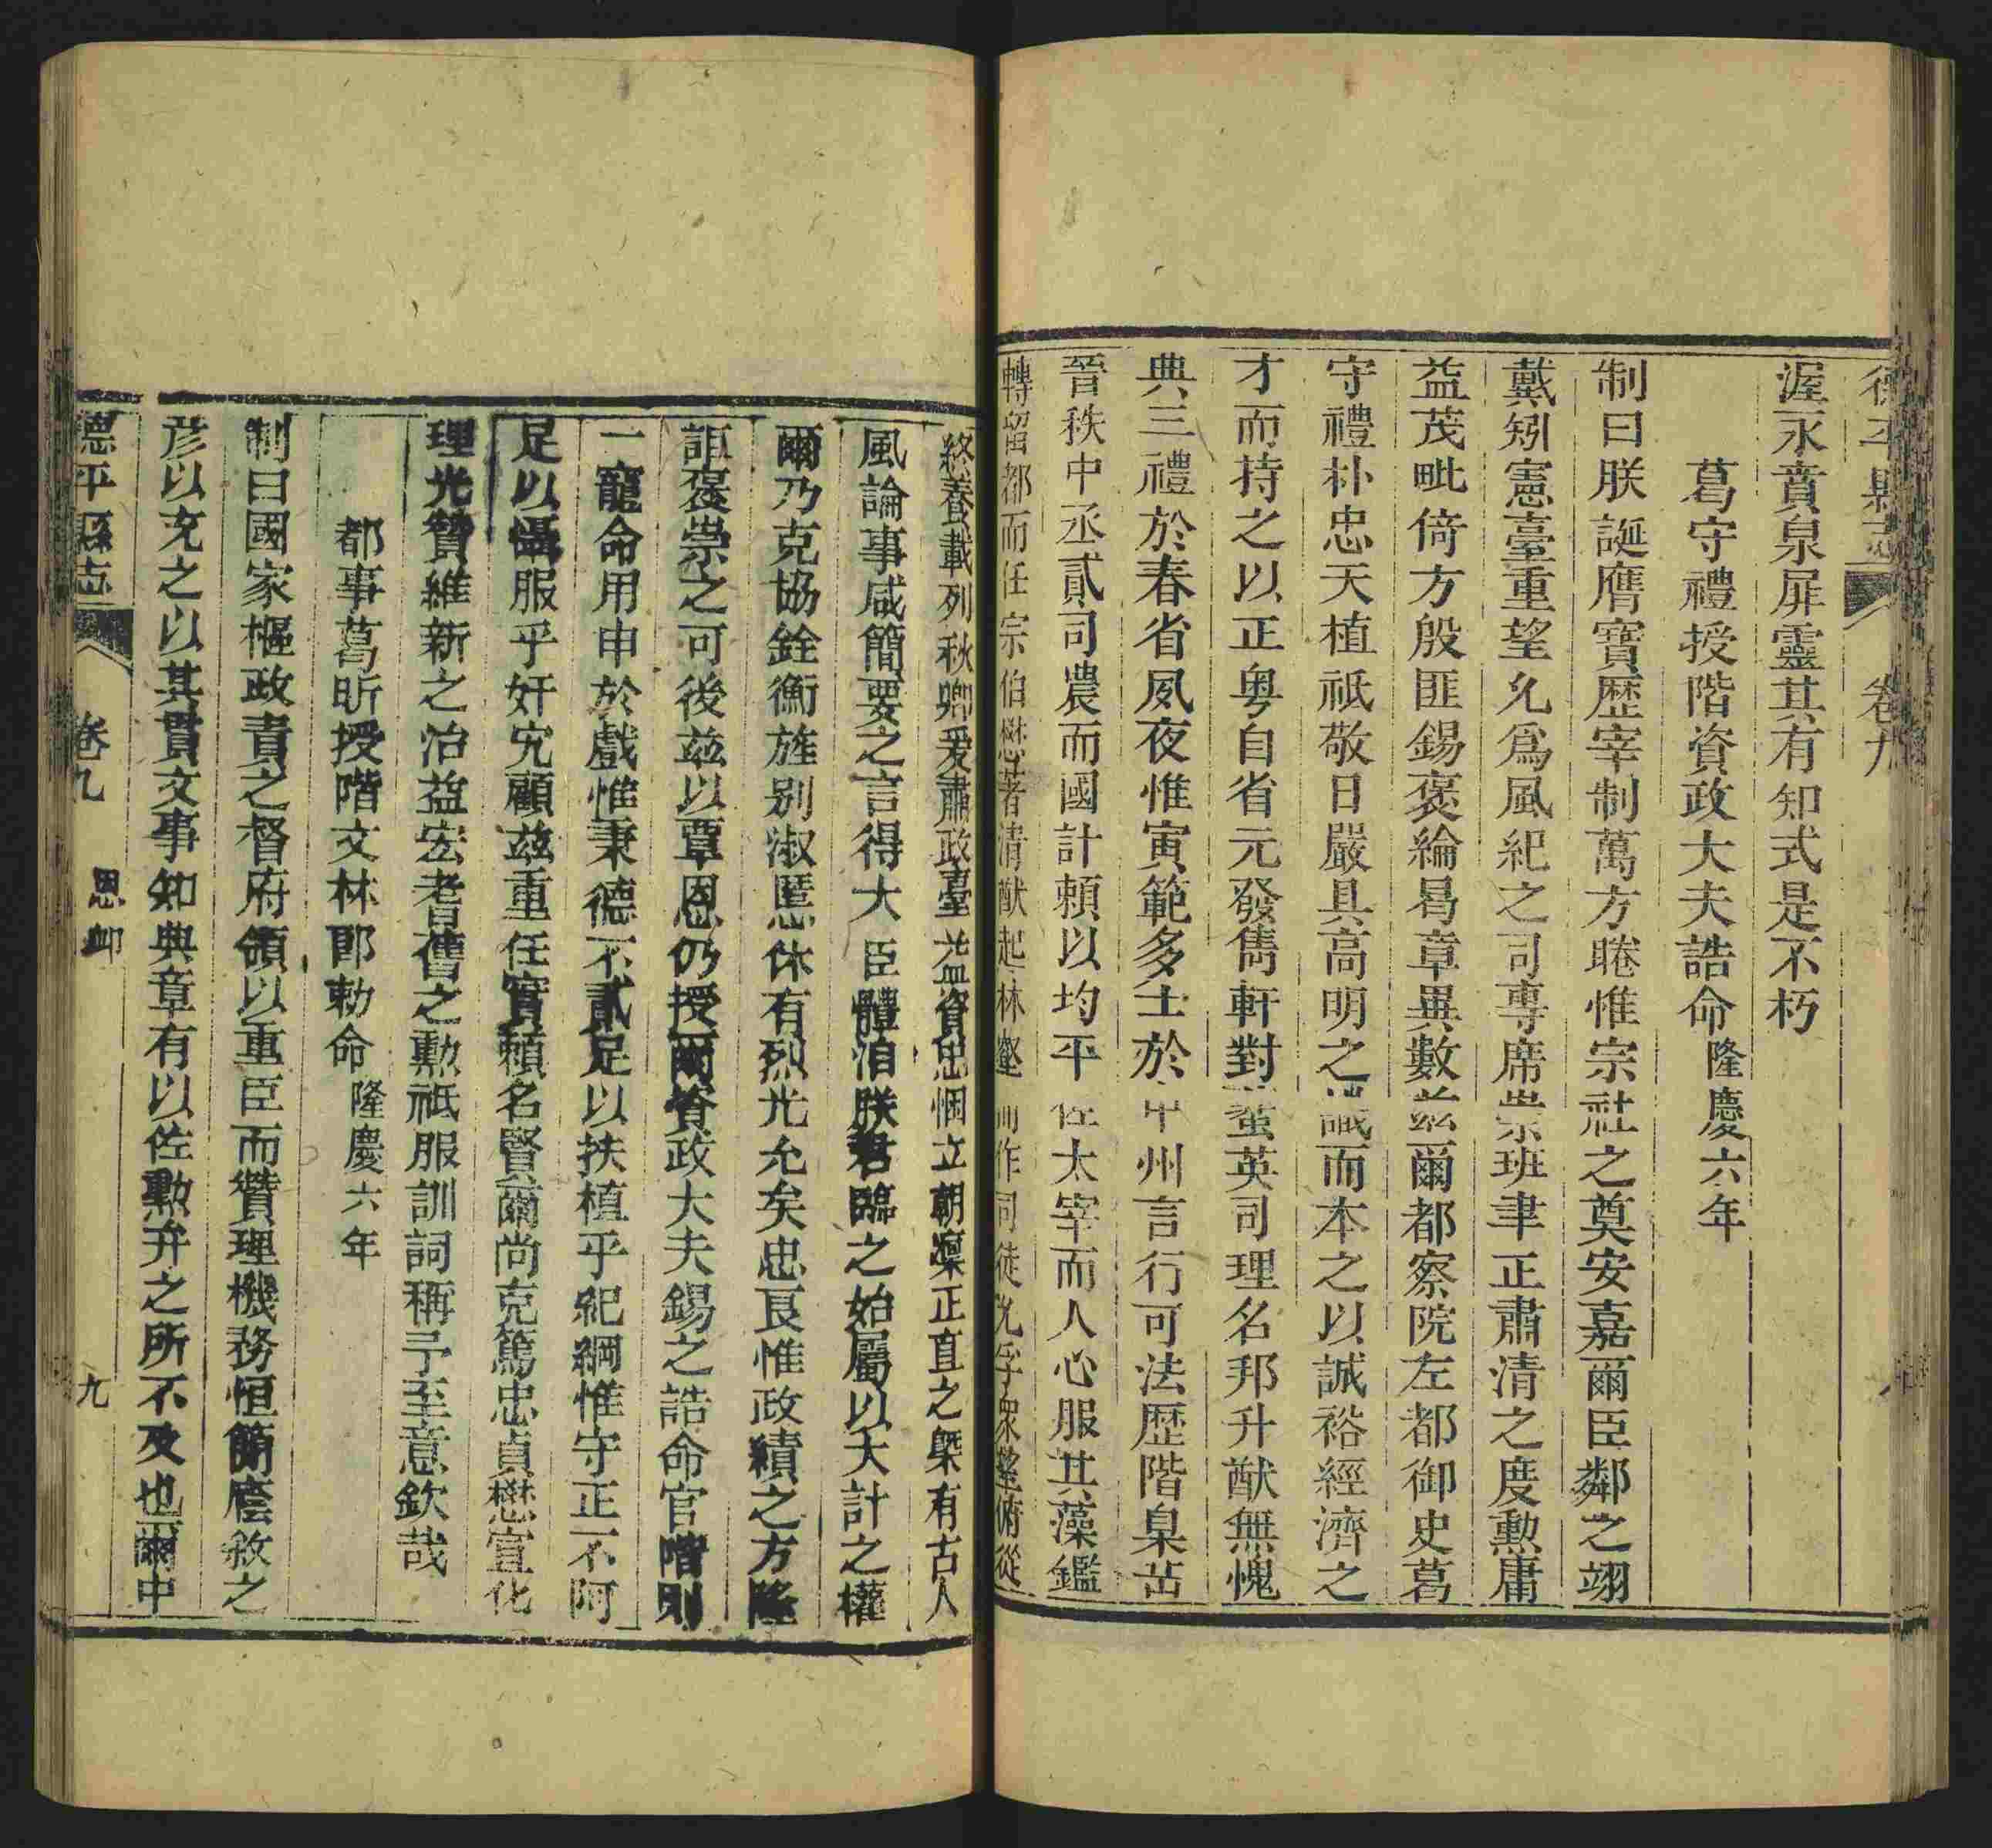 德平縣志 卷九
渥永賁泉扉靈其有知式是不朽
葛守禮授階資政大夫誥命隆慶六年
制曰朕誕膺寶歷宰制萬方睠惟宗社之奠安嘉爾臣鄰之翊
戴矧憲臺重望允爲風紀之司專席崇班聿正肅清之度勲庸
益茂毗倚方殷匪錫褒綸曷章異數茲爾都察院左都御史葛
守禮朴忠天植祇敬日嚴具高明之識而本之以誠裕經濟之
才而持之以正粤自省元發雋軒對蜚英司理名邦升猷無愧
典三禮於春省夙夜惟寅範多士於中州言行可法歷階臬岳
晉秩中丞貳司農而國計賴以均平佐太宰而人心服其藻鑑
轉留都而任宗伯懋著清猷起林壑而作司徒允孚衆望俯從
終養載列秋卿爰肅政臺益資忠悃立朝凜正直之槩有古人
風論事咸簡要之言得大臣體洎朕君臨之始屬以大計之權
爾乃克協銓衡旌别淑慝休有烈光允矣忠良惟政績之方隆
詎褒崇之可後茲以覃恩仍授爾資政大夫錫之誥命官階則
一寵命用申於戲惟秉德不貳足以扶植乎紀綱惟守正不阿
足以懾服乎奸宄顧茲重任實賴名賢爾尚克篤忠貞懋宣化
理光贊維新之治益宏耆舊之勲祇服訓詞稱予至意欽哉
都事葛昕授階文林郎勅命隆慶六年
制曰國家樞政責之督府領以重臣而贊理機務恒簡廕敘之
彦以充之以其貫文事知典章有以佐勲弁之所不及也爾中
德平縣志 卷九 恩卹 九